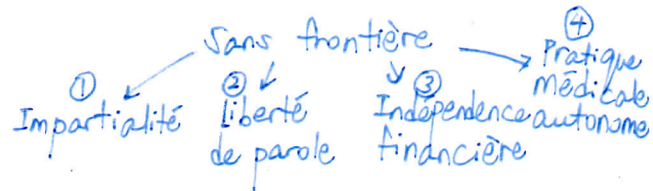 Sans frontière
① Impartialité
② Liberté
de parole
③ Indépendence
financière
④ Pratique
médicale
autonome